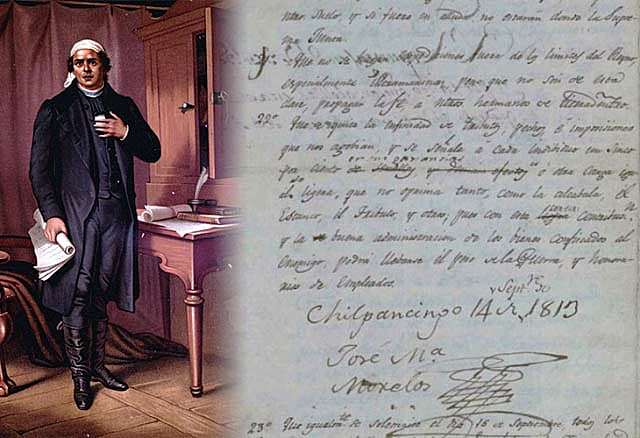 ntro. Suelo, y si fuere en ayuda no estarán donde la Supre
ma Junta.
Que no se hagan expediciones fuera de los limites del Reyno,
especialmente Ultramarinas, pero que no son de esta
clase, propagar la fe a ntros hermanos de tierradentro.
22º Que se quite la infinidad de tributos, pechos e imposiciones
que nos agobian, y se señale a cada individuo un cinco
por ciento en sus ganancias u otra carga igual
de ligera, que no oprima tanto, como la alcabala, el
Estanco, el Tributo, y otros, pues con esta
y la buena administracion de los bienes confiscados al
Enemigo, podrá llebarse el peso de la Guerra, y honora
rios de Empleados.
Chilpancingo 14 de Septre 1813
José Ma
Morelos
23º Que igualmte se solemnice el dia 16 de Septiembre, todos los